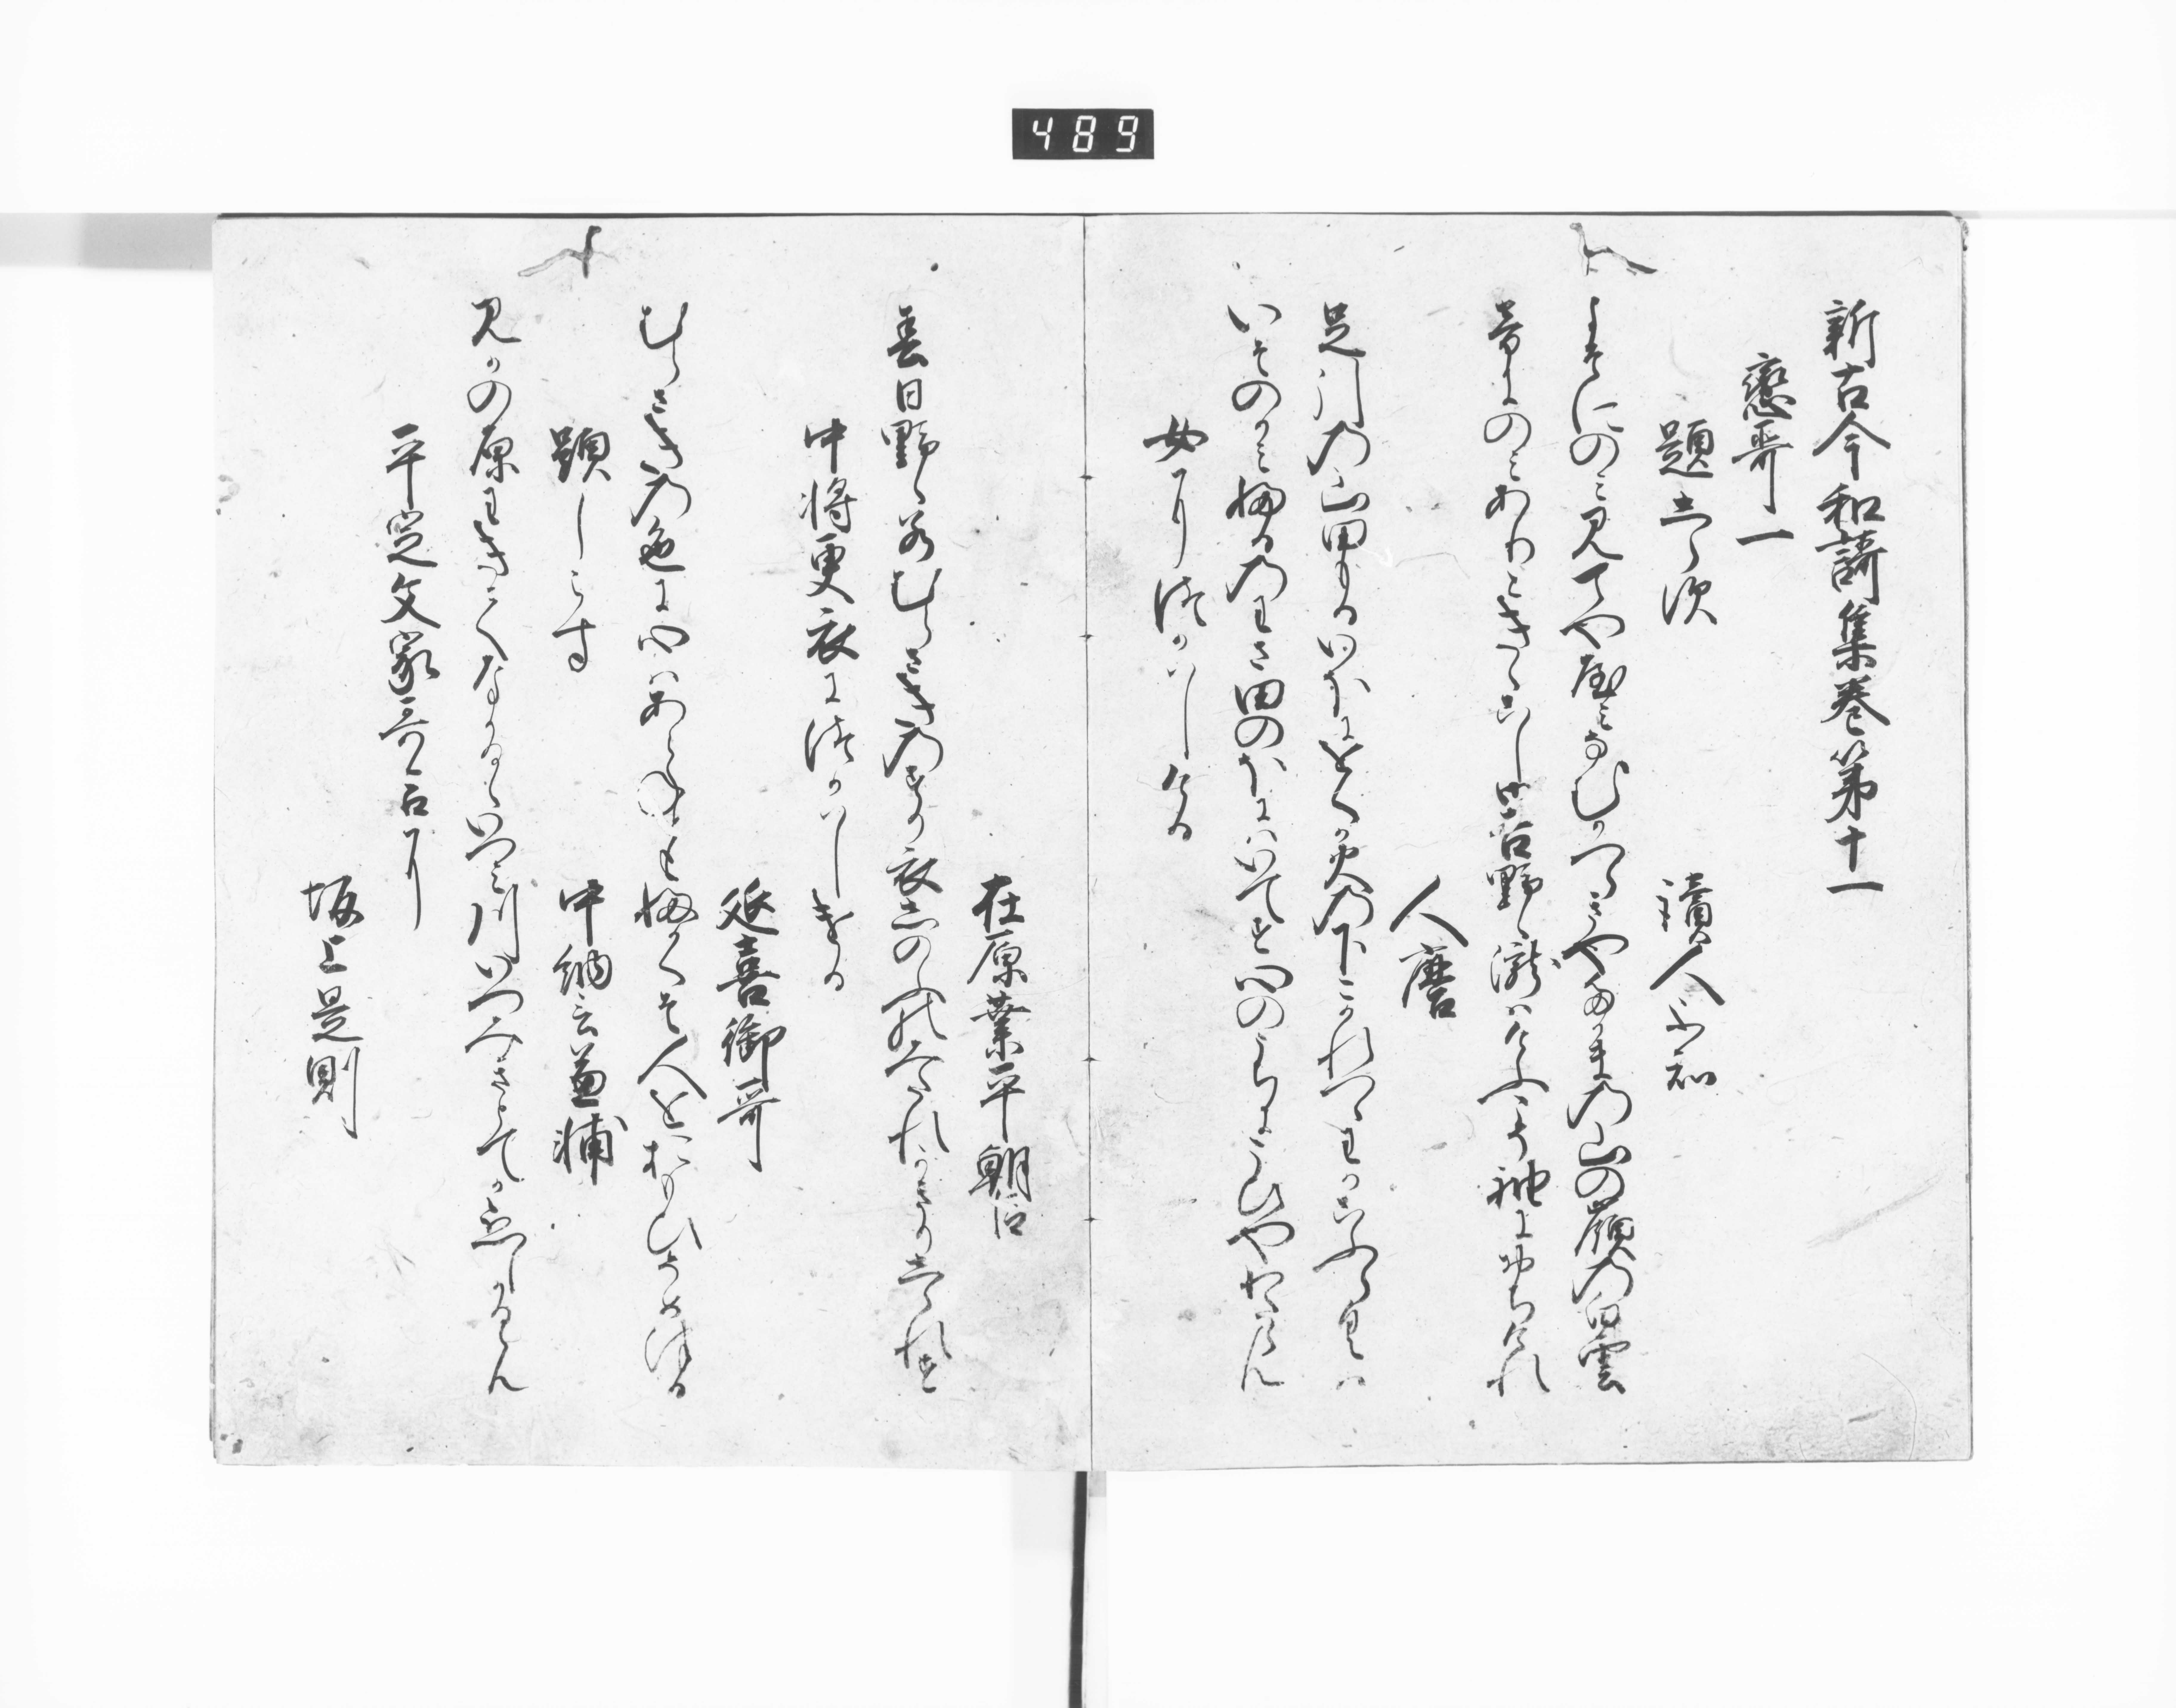 489
新古今和謌集巻第十一
戀哥一
題しらす
讀人不知
よそにのみ見てやゝみなむかつらきやたかまの山の嶺の白雲
音にのみありときゝこしみ吉野ゝ瀧はけふこそ袖におちけれ
人麿
足引の山田もるいほにをくか火の下こかれつゝわかこふらくは
いその神ふるのわさ田のほにはいてす心のうちにこひやわたらん
女につかはしける
在原業平朝臣
春日野ゝ若むらさきのすり衣しのふのみたれかきりしられす
中将更衣につかはしける
延喜御哥
むらさきの色に心はあらねともふかくそ人をおもひそめつる
題しらす
中納言兼輔
みかの原わきてなかるゝいつみ川いつみきとてか恋しかるらん
平定文家哥合に
坂上是則